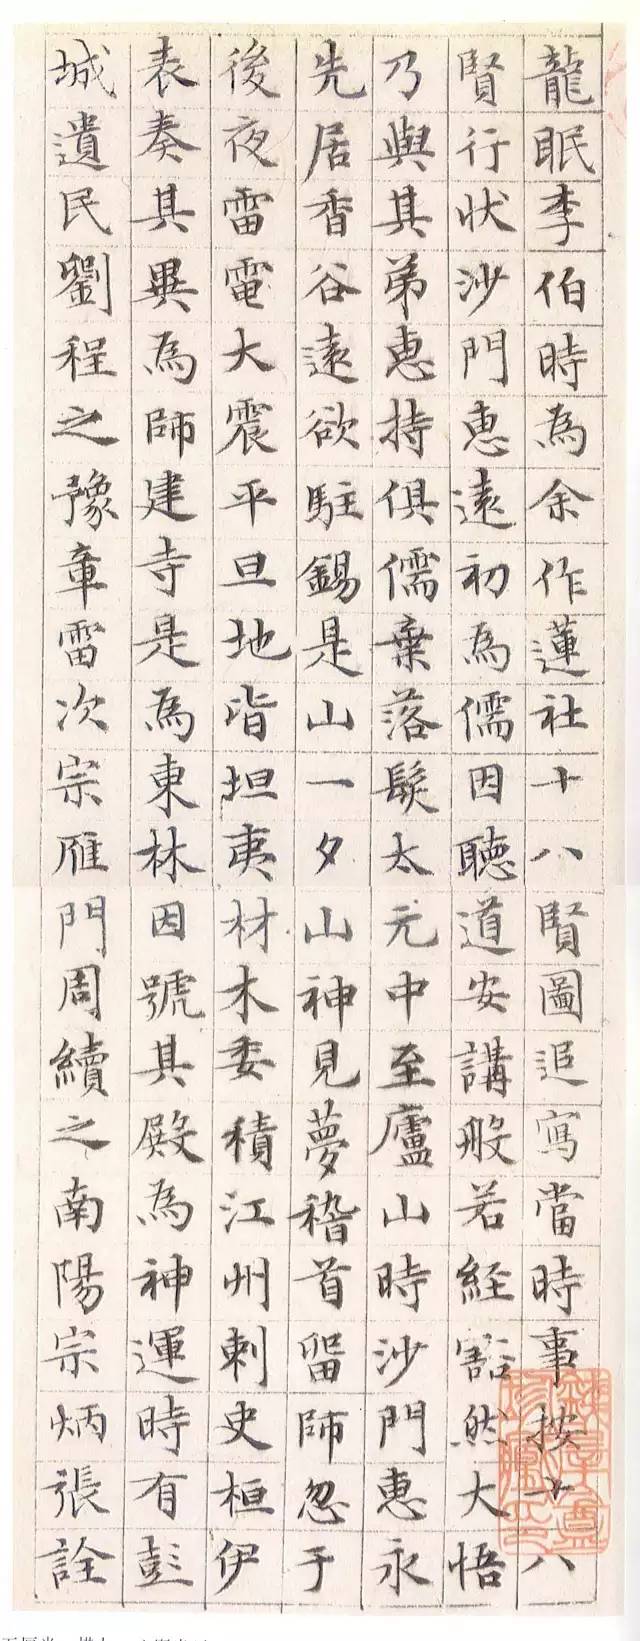 龍眠李伯時為余作蓮社十八賢圖追寫當時事按十八
賢行狀沙門惠遠初為儒因聽道安講般若経豁然大悟
乃與其弟惠持俱儒棄落髮太元中至廬山時沙門惠永
先居香谷遠欲駐錫是山一夕山神見夢稽首留師忽于
後夜雷電大震平旦地皆坦夷材木委積江州刺史桓伊
表奏其異為師建寺是為東林因號其殿為神運時有彭
城遺民劉程之豫章雷次宗雁門周續之南陽宗炳張詮